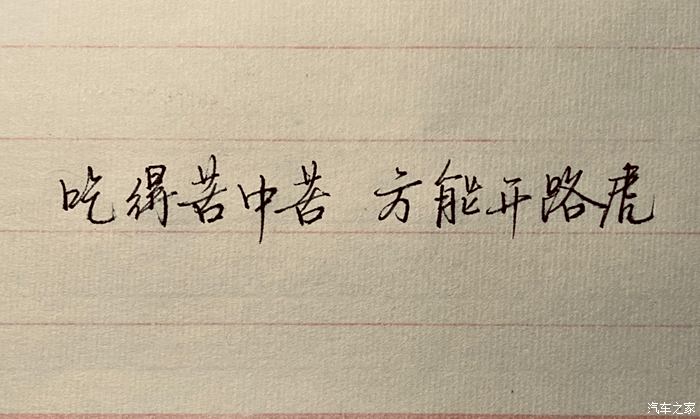 吃得苦中苦 方能开路虎
汽车之家